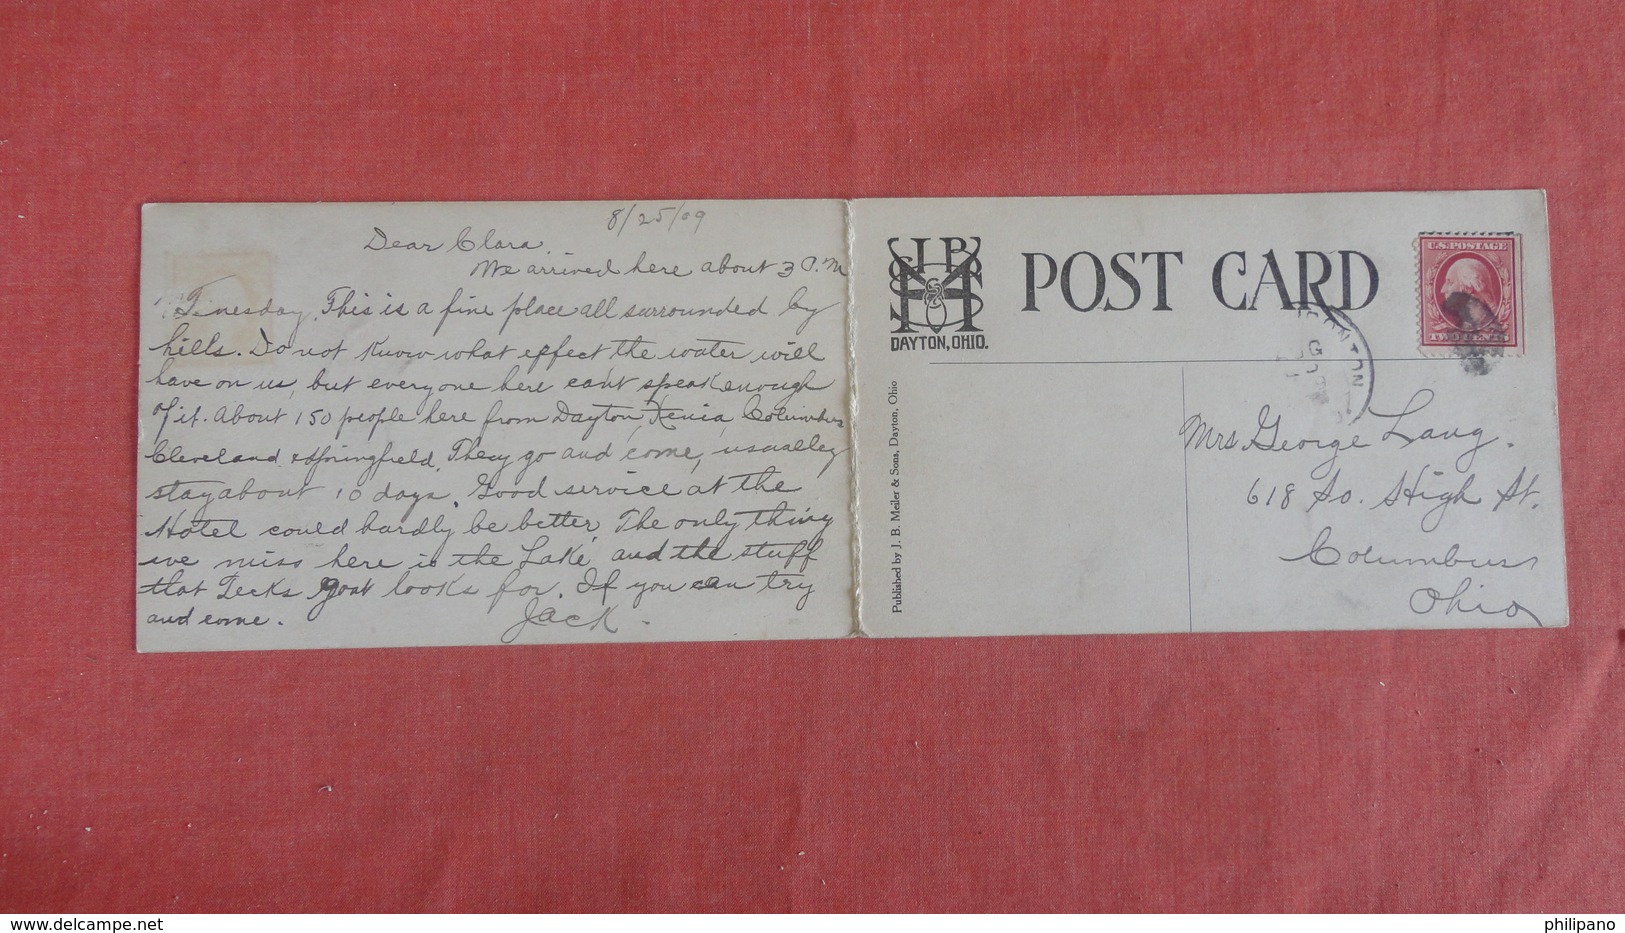 8/25/09
Dear Clara.
We arrived here about 3 P.M
Tunesday. This is a fine place all surrounded by
hills. Do not know what effect the water will
have on us, but everyone here can't speak enough
of it. About 150 people here from Dayton, Xenia, Columbus
Cleveland & Springfield. They go and come, usualley
stay about 10 days. Good service at the
Hotel could hardly be better. The only thing
we miss here is the Lake, and the stuff
that Jecks goat looks for. If you can try
and come. Jack.
DAYTON, OHIO.
POST CARD
U.S. POSTAGE
TWO CENTS
Published by J. B. Meiler & Sons, Dayton, Ohio
Mrs George Lang.
618 So. High St.
Columbus
Ohio
philipano
www.delcampe.net